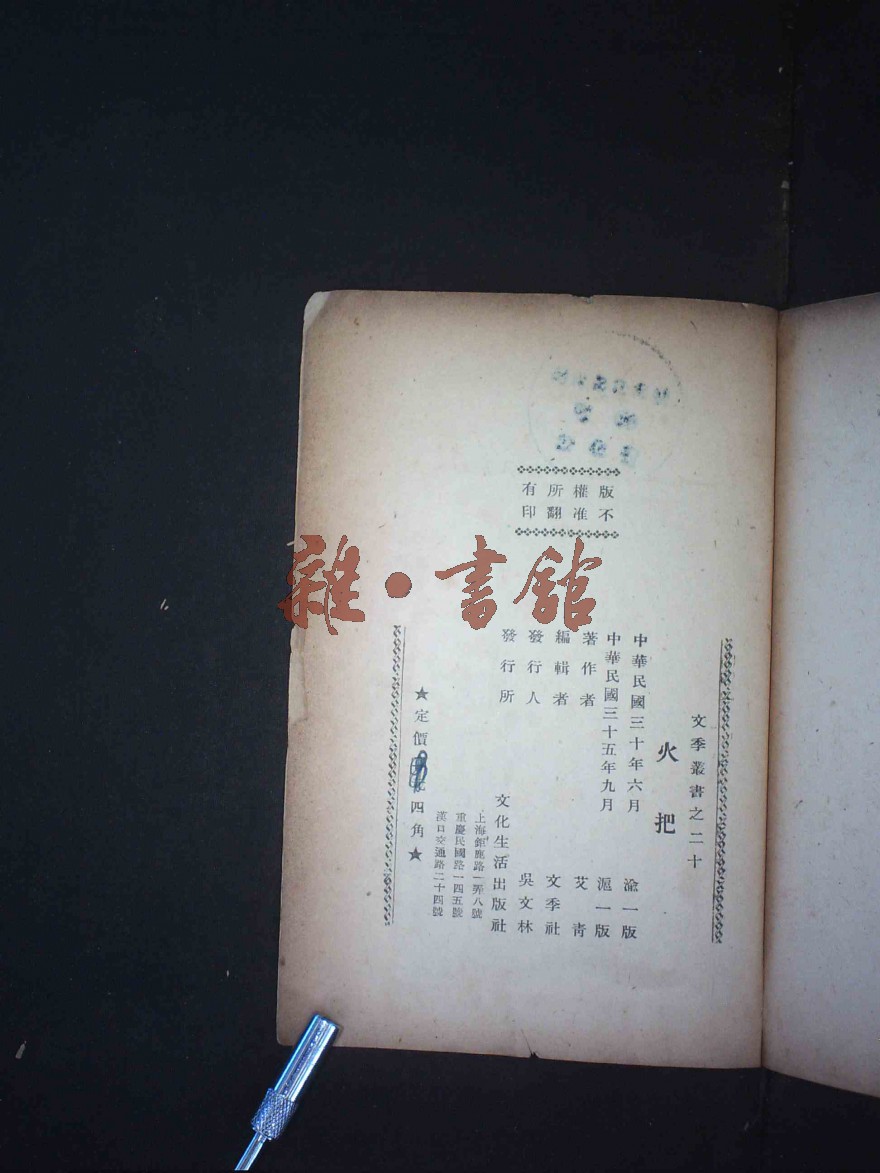 版權所有
不准翻印
雜·書館
文季叢書之二十
火把
中華民國三十年六月 渝一版
中華民國三十五年九月 滬一版
著作者 艾青
編輯者 文季社
發行人 吳文林
發行所 文化生活出版社
上海鉅鹿路一弄八號
重慶民國路一四五號
漢口交通路二十四號
★定價 四角★